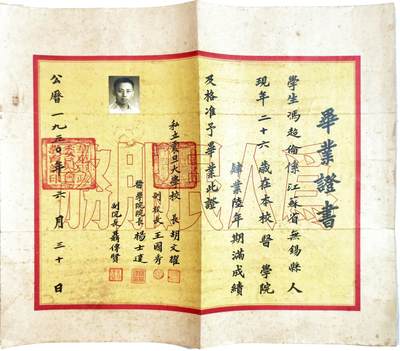 畢業證書
學生馮超倫係江蘇省無錫縣人
現年二十六歲在本校醫學院
肄業陸年期滿成績
及格准予畢業此證
私立震旦大學校長胡文耀
副校長王國秀
醫學院院長楊士達
副院長聶傳賢
公曆一九五〇年六月三十日